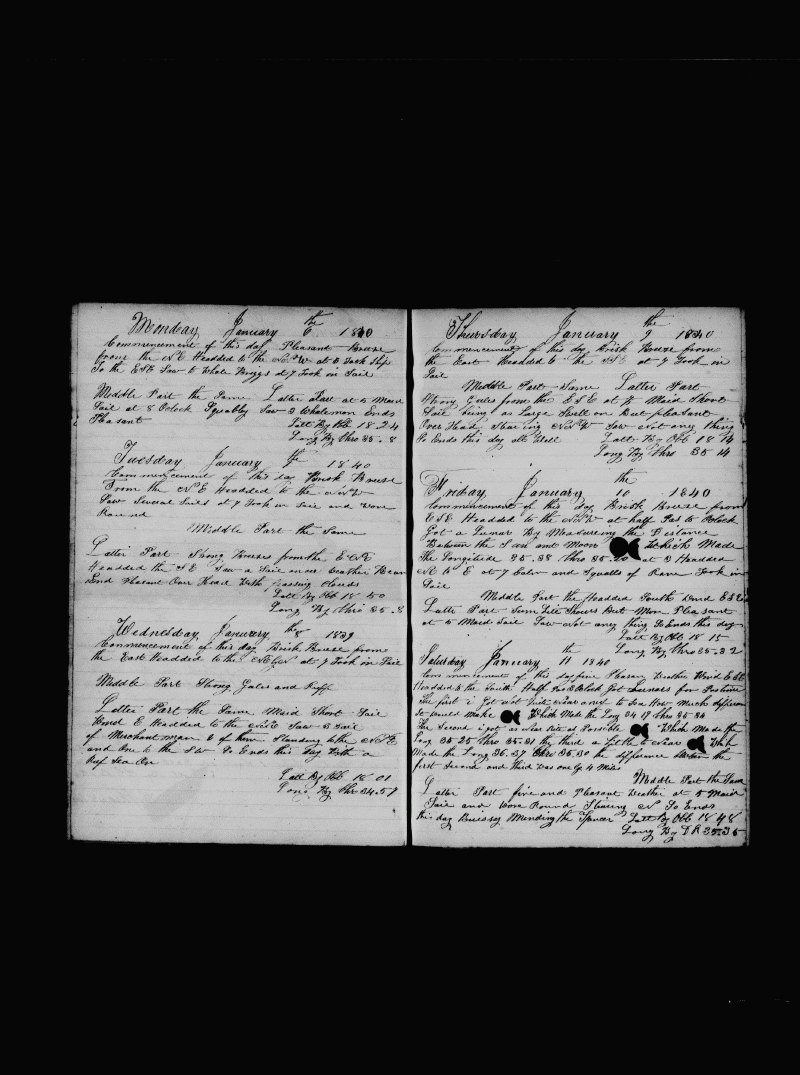 Monday January the 6 1840
Commencement of this day Pleasant Breeze
from the NE Headded to the NNW at 6 Tack Ship
To the ESE Saw to Whale Briggs at 7 Took in Sail
Middle Part the Same Latter Part at 5 Maid
Sail at 8 Oclock Squably Saw 3 Whalemon Ends
Pleasant Latt By Obb 18.24
Long By Chro 35.8
Tuesday January 7 1840
Commencement of this day Brisk Breeze
From the NE Headded to the NNW
Saw Several Sails at 7 Took in Sail and Wore
Round
Middle Part the Same
Latter Part Strong Breezes from the E
Headded the SE Saw a Sail on our Weather Beam
End Pleasant Over Head With Passing Clouds
Latt By Obb 18 50
Long By Chro 35.8
Wednesday January the 8 1839
Commencement of this day Brisk Breeze from
the East Headded to the at 7 Took in Sail
Middle Part Strong Gales and Ruff
Latter Part the Same Maid Short Sail
Wind E Headded to the Saw 3 Sail
of Merchant man 2 of them Standing to the
and One to the SW So Ends this day With a
Ruf Sea On
Latt By Obb 18 01
Long By Chr 34.57
Thursday January the 9 1840
Commencement of this day Brisk Breeze from
the East Headded to the at 7 Took in
Sail
Middle Part Same Latter Part
Strong Gales from the ESE at 7 Maid Short
Sail being as Large Swell on But pleasant
Over Head Stearing NNW Saw Not any thing
So Ends this day all Well Latt By Obb 18 14
Long By Chro 35 14
Friday January the 10 1840
Commencement of this day Brisk Breeze from
ESE Headded to the NNW at half Pas to Oclock
Got a Lunar By Measureing the Distance
Between the Sun and Moon Which Made
the Longitude 35.38 Chro 35.20 at 3 Headded
N to E at 7 Calm and Squalls of Rane Took in
Sail
Middle Part the Headded South Wind ESE
Latter Part Sum Litl Showrs But Mor Pleasant
at 5 Maid Sail Saw Not any thing So Ends this day
Latt By Obb 18 15
Long By Chro 35.32
Saturday January the 11 1840
Commencement of this day fine Pleasan Weather Wind E
Headded to the South Half Pas 3 Oclock Got Lunars for Pastime
The first i Got Not Side near anuf to See How Much differan
It Could Make Which Made the Long 34 17 Chro 35 34
The Second i got as Near as Possible Which Made the
Long 35 25 Chro 35.31 the third a Little to Near Which
Made the Long 36.37 Chro 35.30 the difference Between the
first Second and Third Was one Long 4 Miles
Middle Part the Same
Latter Part fine and Pleasant Weather at 5 Maid
Sail and Wore Round Stearing N So Ends
this day Buissey Mending the Spencer Latt By Obb 18 48
Long By D R 35.35